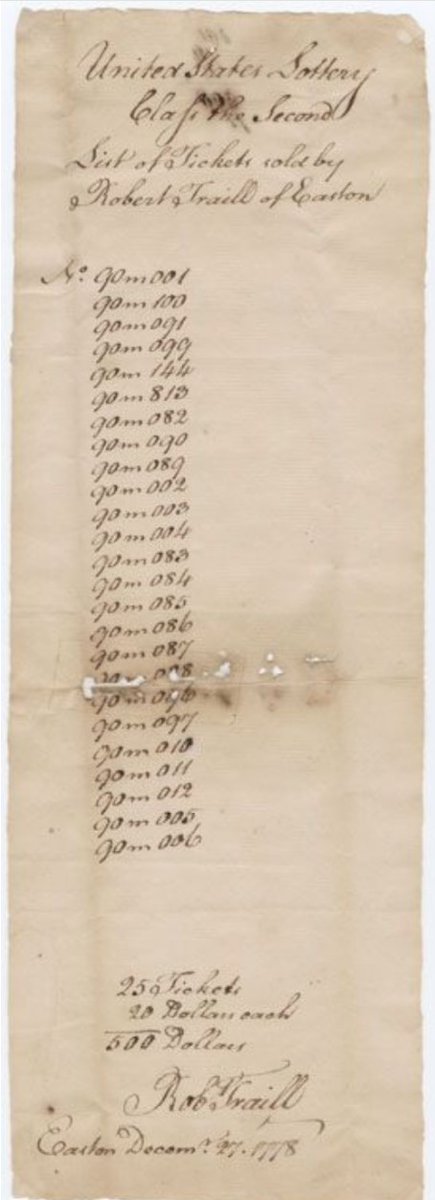 United States Lottery
Class the Second
List of Tickets sold by
Robert Traill of Easton
No. 90m001
90m100
90m091
90m099
90m144
90m813
90m082
90m090
90m089
90m002
90m003
90m004
90m083
90m084
90m085
90m086
90m087
90m096
90m097
90m010
90m011
90m012
90m005
90m006
25 Tickets
20 Dollars each
500 Dollars
Robt Traill
Easton Decemr. 27. 1778